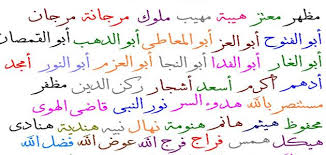 مظهر معتز هيبة مهيب ملوك مرجانة مرجان
أبو الفتوح أبو العز أبو المعاطي أبو الدهب أبو القمصان
أبو الغار أبو الفدا أبو النجا أبو العزم أبو النور أمجد
أدهم أكرم أسعد أشجار ركن الدين مظفر
مستنصر بالله هدوء السر نور النبي قاضي الهوى
محفوظ هيثم هانم هنومة نهال نبيه هندية هنادى
هيكل همس فراج فرج الله عوض الله فضل الله